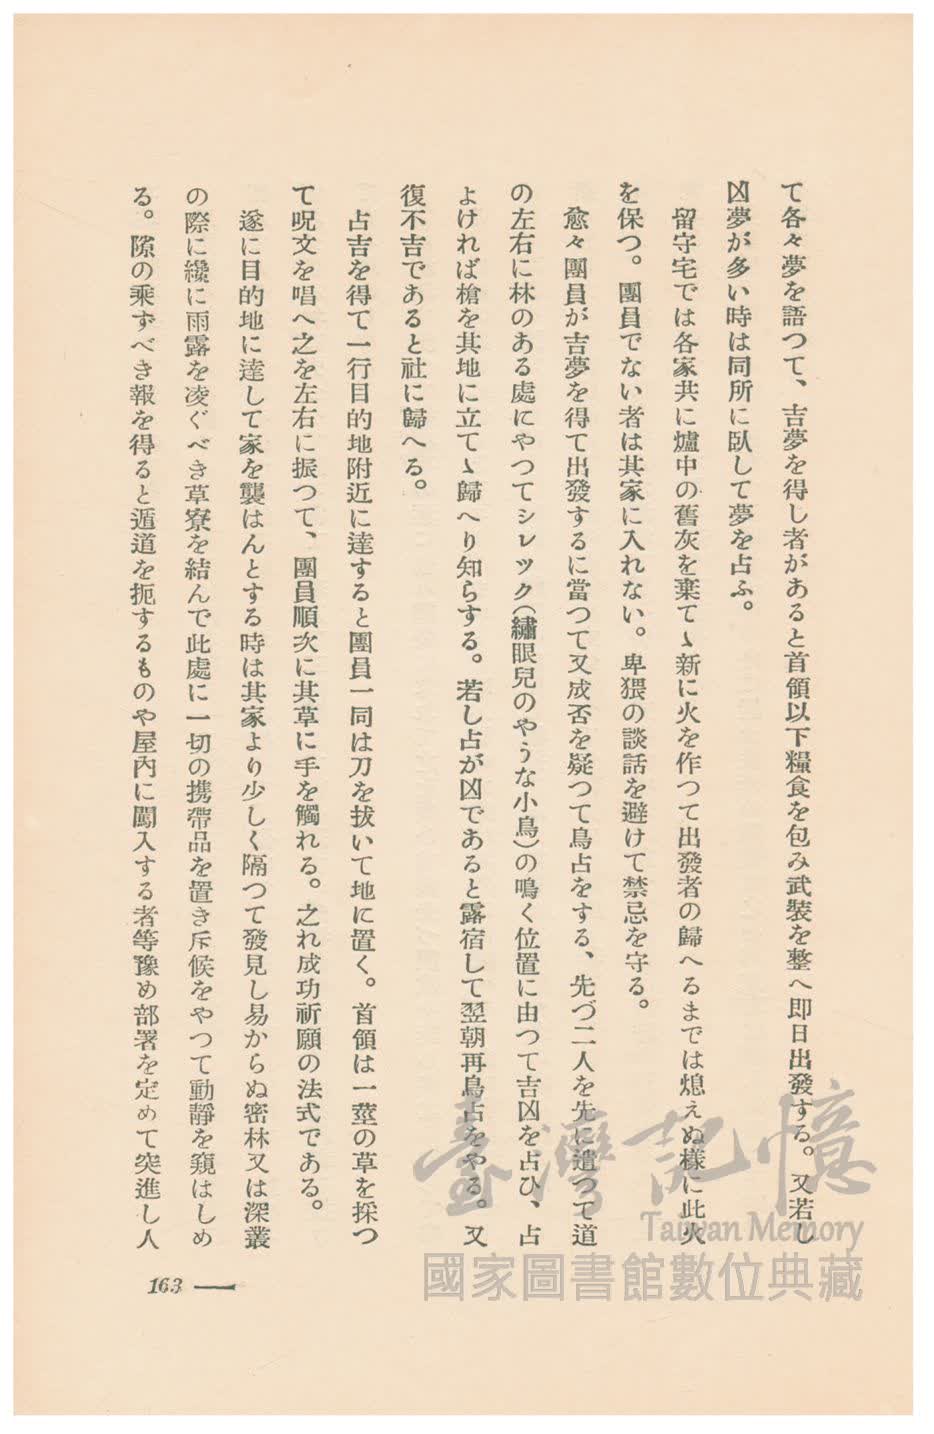 て各々夢を語つて、吉夢を得し者があると首領以下糧食を包み武裝を整へ即日出發する。又若し
凶夢が多い時は同所に臥して夢を占ふ。
留守宅では各家共に爐中の舊灰を棄てゝ新に火を作つて出發者の歸へるまでは熄えぬ樣に此火
を保つ。團員でない者は其家に入れない。卑猥の談話を避けて禁忌を守る。
愈々團員が吉夢を得て出發するに當つて又成否を疑つて鳥占をする、先づ二人を先に遣つて道
の左右に林のある處にやつてシレック(繡眼兒のやうな小鳥)の鳴く位置に由つて吉凶を占ひ、占
よければ槍を其地に立てゝ歸へり知らする。若し占が凶であると露宿して翌朝再鳥占をやる。又
復不吉であると社に歸へる。
占吉を得て一行目的地附近に達すると團員一同は刀を拔いて地に置く。首領は一莖の草を採つ
て呪文を唱へ之を左右に振つて、團員順次に其草に手を觸れる。之れ成功祈願の法式である。
遂に目的地に達して家を襲はんとする時は其家より少しく隔つて發見し易からぬ密林又は深叢
の際に纔に雨露を凌ぐべき草寮を結んで此處に一切の携帶品を置き斥候をやつて動靜を窺はしめ
る。隙の乘ずべき報を得ると遁道を扼するものや屋內に闖入する者等豫め部署を定めて突進し人
163
臺灣記憶
Taiwan Memory
國家圖書館數位典藏